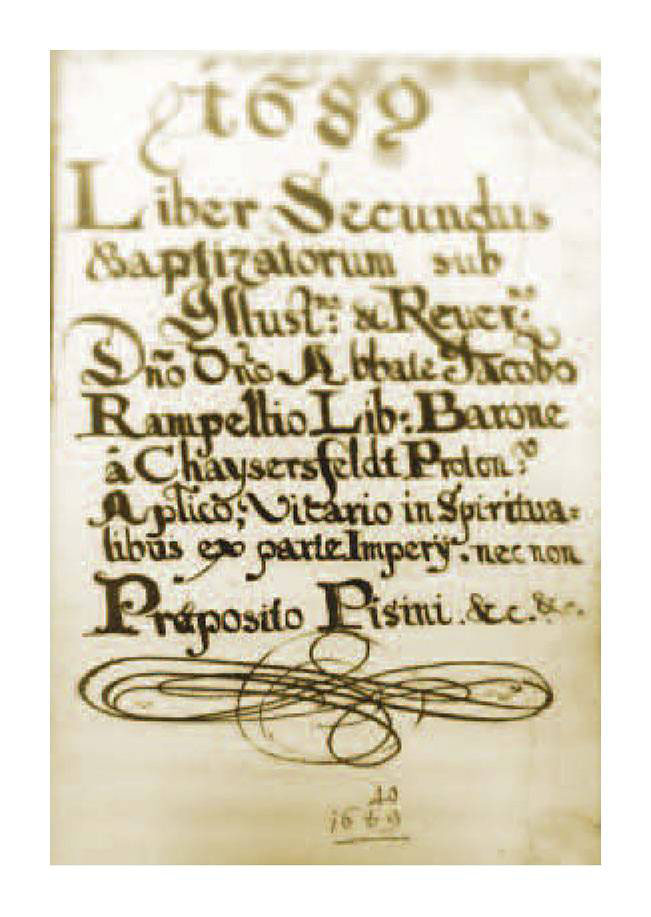 1689
Liber Secundus
Baptizatorum sub
Illust:mo & Rever:mo
Dño Dño Abbate Jacobo
Rampellio Lib: Barone
â Chaysersfeldt Proton:o
Aplico, Vicario in Spiritua=
libus ex parte Imperÿ. nec non
Præposito Pisini. &c. &c.
40
1669